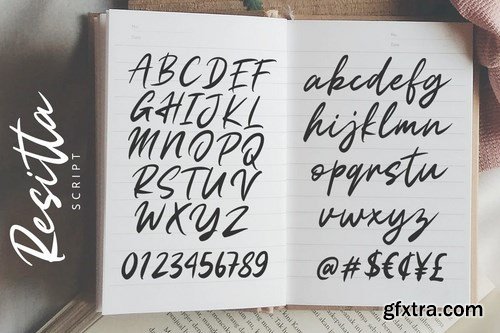 Resitta
SCRIPT
No.
Date
ABCDEF
GHIJKL
MNOPQ
RSTUV
WXYZ
0123456789
No.
Date
abcdefg
hijklmn
opqrstu
vwxyz
@#$€¢¥£
gfxtra.com